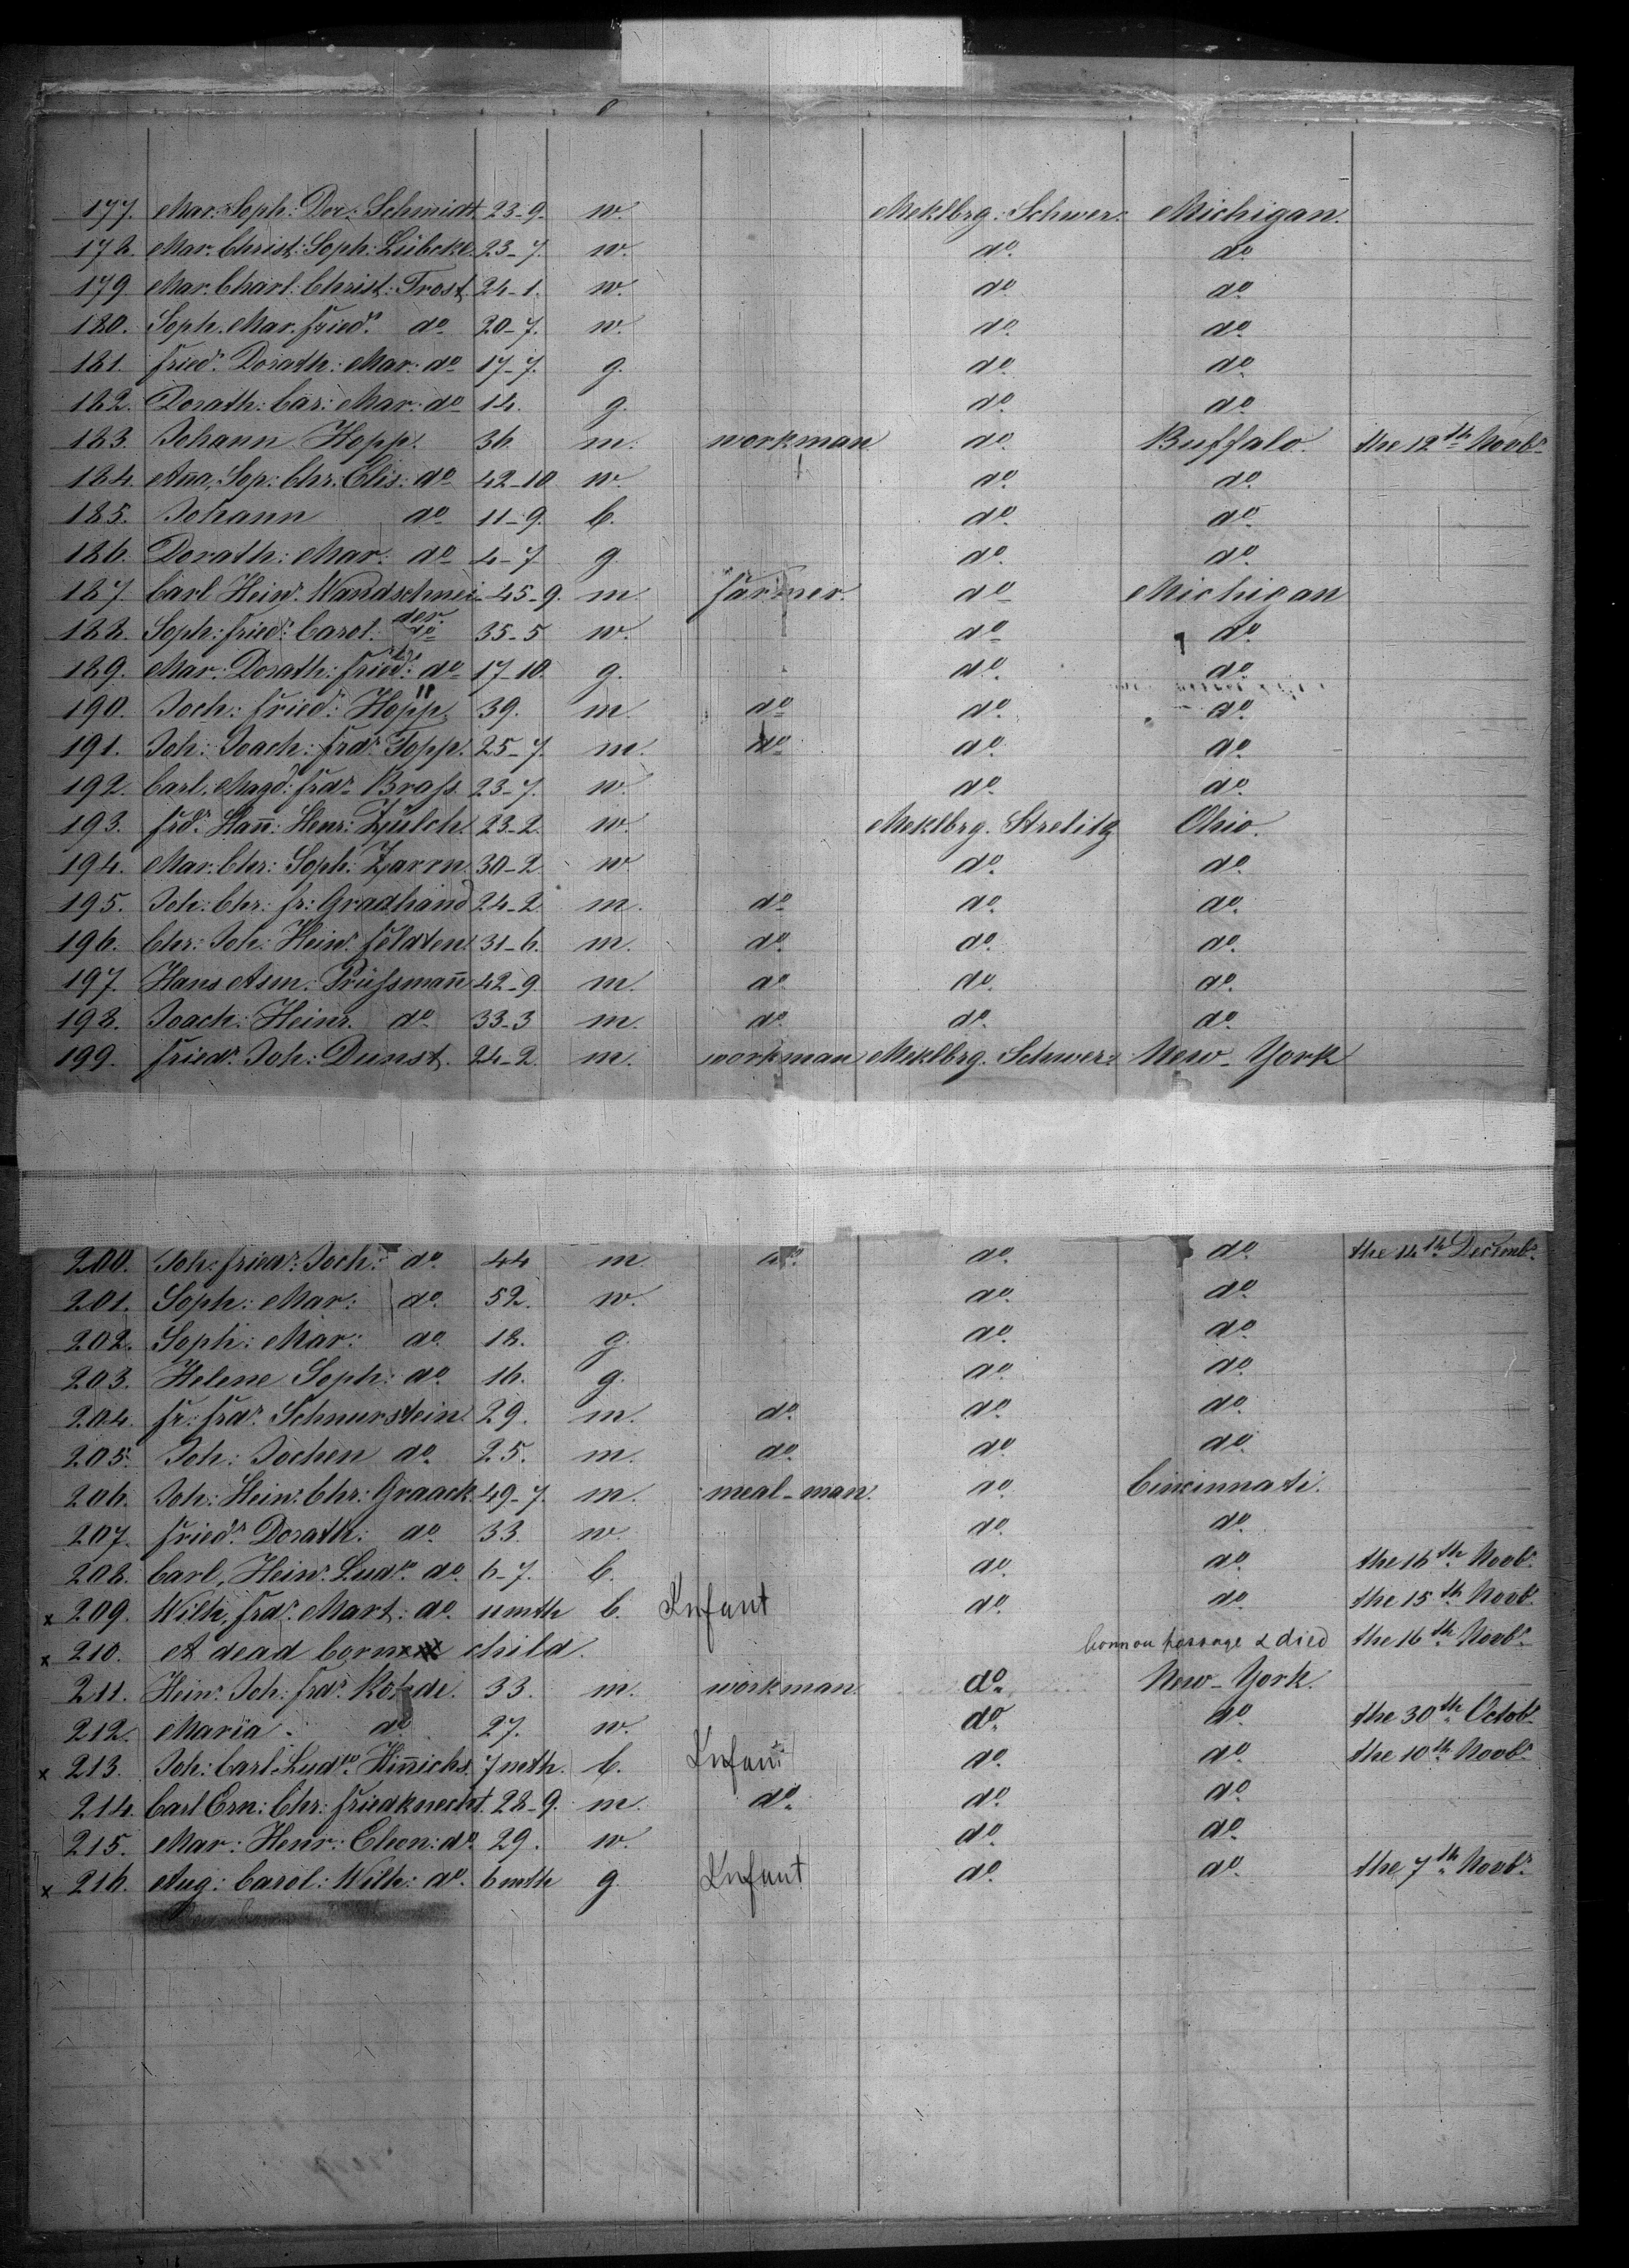 177. Mar: Soph: Dor: Schmidt 23-9. w. Meklbrg: Schwer: Michigan.
178. Mar. Christ: Soph: Lübcke. 23-7. w. do. do.
179 Mar. Charl: Christ: Trost 24-1. w. do. do.
180. Soph. Mar. Friedr. do 20-7. w. do. do.
181. Friedr. Dorath: Mar: do 17-7. g. do. do.
182. Dorath: Car: Mar: do 14. g. do. do.
183. Johann Hopp. 36. m. workman. do. Buffalo. the 12th Novbr.
184. Ana, Sop: Chr: Elis: do 42-10 w. do. do.
185. Johann do 11-9. b. do. do.
186. Dorath: Mar: do 4-7 g. do. do.
187. Carl Heinr. Wandschnei- 45-9. m. farmer. do Michigan
der.
188. Soph: Friedr: Carol: do 35-5 w. do do.
189. Mar: Dorath: Friedr: do 17-10. g. do. do.
190. Joch: Friedr: Hopp. 39. m. do do. do.
191. Joh: Joach: Frdr: Topp. 25-7. m. do do. do.
192. Carl. Magd: Frdr. Brass. 23-7. w. do. do.
193. Frdr. Hann: Henr: Zülch. 23-2. w. Meklbrg. Strelitz Ohio.
194. Mar. Chr: Soph: Zarrn. 30-2. w. do. do.
195. Joh: Chr: Fr: Gradhand 24-2. m. do do. do.
196. Chr: Joh: Heinr. Feldten. 31-6. m. do. do. do.
197. Hans Asm. Prüssmann 42-9. m. do do. do.
198. Joach: Heinr. do. 33-3 m. do. do. do.
199. Friedr. Joh: Dunst. 24-2. m. workman Meklbrg. Schwer: New-York
200. Joh: Friedr: Joch: do. 44 m. do. do. do. the 14th Decembr.
201. Soph: Mar: do. 52. w. do. do.
202. Soph: Mar: do. 18. g. do. do.
203. Helene Soph: do. 16. g. do. do.
204. Fr: Frdr. Schnurstein. 29. m. do. do. do.
205. Joh: Jochen do. 25. m. do. do. do.
206. Joh: Heinr. Chr: Graack. 49-7. m. meal-man. do. Cincinnati.
207. Friedr. Dorath: do. 33. w. do. do.
208. Carl, Heinr. Ludw. do. 6-7. b. do. do. the 16th Novbr.
x 209. Wilh, Frdr. Mart: do. 11mth b. Infant do. do. the 15th Novbr.
x 210. A dead born xxx child. born on passage & died the 16th Novbr.
211. Heinr. Joh: Frdr. Rohde. 33. m. workman. do. New-York.
212. Maria. do 27. w. do. do. the 30th Octobr.
x 213. Joh: Carl Ludw. Hinnichs. 7 mth. b. Infant do. do. the 10th Novbr.
214. Carl Ern: Chr: Friedknecht. 28-9. m. do. do. do.
215. Mar: Henr: Eleon: do. 29. w. do. do.
x 216. Aug: Carol: Wilh: do. 6 mth g. Infant do. do. the 7th Novbr.